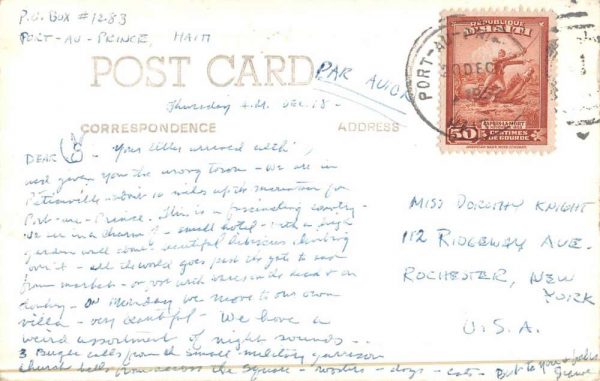 P.O. BOX #1283
PORT-AU-PRINCE, HAITI
POST CARD
PAR AVION
Thursday A.M. Dec. 18 -
CORRESPONDENCE
ADDRESS
DEAR
Your letter arrived
and given you the wrong town - We are in
Petionville about 10 miles up the mountain
Port-au-Prince. This is a fascinating country -
We are in a charming small hotel - with a high
garden wall beautiful hibiscus climbing
over it - all the world goes past the gate to and
from market - on foot with on head or on
donkey - On Monday we move to our own
villa - very beautiful - We have a
weird assortment of night sounds -
3 Bugle calls from the small military garrison
church bells from across the square - roosters - dogs - cats - But to you
REPUBLIQUE
D'HAITI
50
CENTIMES
DE GOURDE
PORT-AU-
DEC
MISS DOROTHY KNIGHT
112 RIDGEWAY AVE.
ROCHESTER, NEW
YORK
U.S.A.